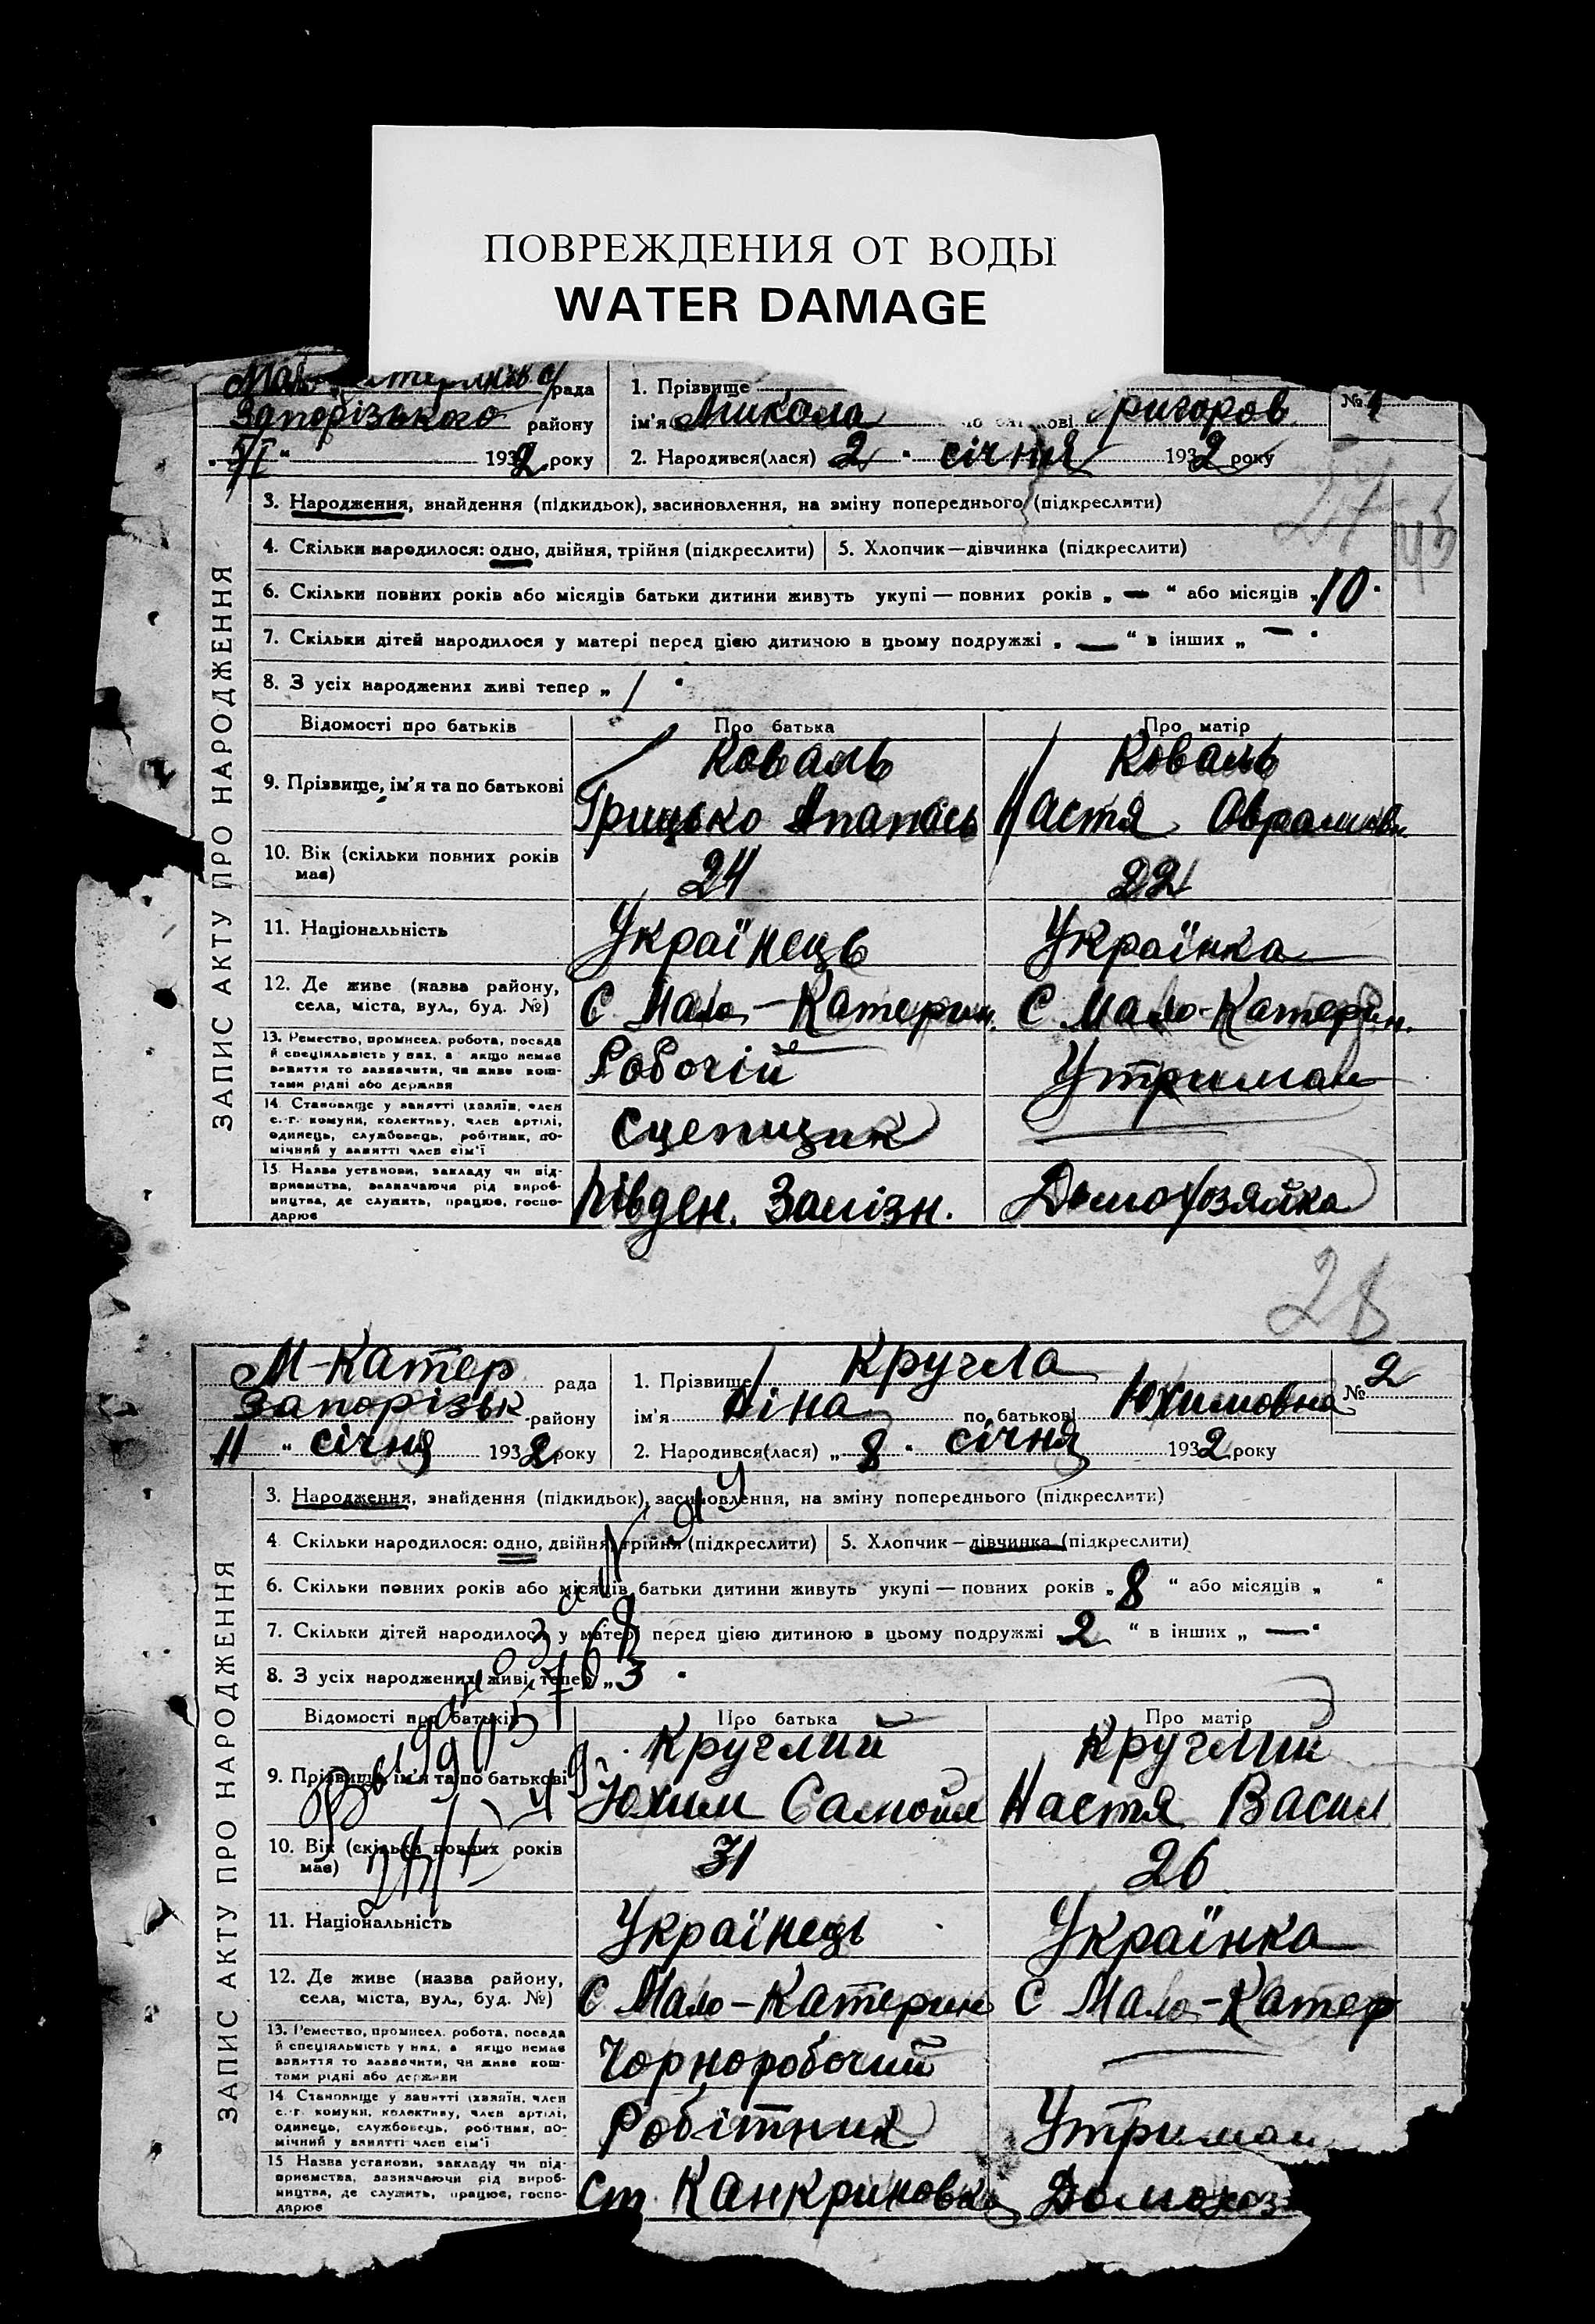 ПОВРЕЖДЕНИЯ ОТ ВОДЫ
WATER DAMAGE
рада
Запорізького району
5/I 1932 року
1. Прізвище
ім'я Микола по батькові Григоров
2. Народився(лася) 2 " січня 1932 року
№ 1
27
ЗАПИС АКТУ ПРО НАРОДЖЕННЯ
3. Народження, знайдення (підкидьок), засиновлення, на зміну попереднього (підкреслити)
4. Скільки народилося: одно, двійня, трійня (підкреслити) 5. Хлопчик—дівчинка (підкреслити)
6. Скільки повних років або місяців батьки дитини живуть укупі — повних років „ — " або місяців „10"
7. Скільки дітей народилося у матері перед цією дитиною в цьому подружжі „ — " в інших „ — "
8. З усіх народжених живі тепер „ 1 "
Відомості про батьків Про батька Про матір
9. Прізвище, ім'я та по батькові
Коваль Коваль
Грицько Апанась Настя Аврамивн
10. Вік (скільки повних років має) 24 22
11. Національність Українець Українка
12. Де живе (назва району, села, міста, вул., буд. №) С Мало-Катерин. С Мало-Катерин.
13. Ремество, промисел. робота, посада й спеціяльність у них, а якщо немає заняття то зазначити, чи живе коштами рідні або держави
Робочій Утриман
14. Становище у занятті (хазяїн, член с.-г. комуни, колективу, член артілі, одинець, службовець, робітник, помічний у занятті член сім'ї
Сцепщик
15. Назва установи, закладу чи підприємства, зазначаючи рід виробництва, де служить, працює, господарює
Півден. Залізн. Домохозяйка
28
М-Катер рада
Запорізьк району
11 " січня 1932 року
1. Прізвище Кругла
ім'я Ніна по батькові Юхимовна
2. Народився(лася) „ 8 " січня 1932 року
№ 2
ЗАПИС АКТУ ПРО НАРОДЖЕННЯ
3. Народження, знайдення (підкидьок), засиновлення, на зміну попереднього (підкреслити)
4. Скільки народилося: одно, двійня, трійня (підкреслити) 5. Хлопчик—дівчинка (підкреслити)
6. Скільки повних років або місяців батьки дитини живуть укупі — повних років „ 8 " або місяців „ "
7. Скільки дітей народилося у матері перед цією дитиною в цьому подружжі 2 " в інших „ — "
8. З усіх народжених живі тепер „ 3 "
Відомості про батьків Про батька Про матір
9. Прізвище, ім'я та по батькові
Круглий Круглий
Юхим Самойл Настя Васил
10. Вік (скільки повних років має) 31 26
11. Національність Українець Українка
12. Де живе (назва району, села, міста, вул., буд. №) С Мало-Катерин С Мало-Катер
13. Ремество, промисел. робота, посада й спеціяльність у них, а якщо немає заняття то зазначити, чи живе коштами рідні або держави
Чорноробочий —
14. Становище у занятті (хазяїн, член с.-г. комуни, колективу, член артілі, одинець, службовець, робітник, помічний у занятті член сім'ї
Робітник Утриман
15. Назва установи, закладу чи підприємства, зазначаючи рід виробництва, де служить, працює, господарює
Ст. Канкриновка Домохоз